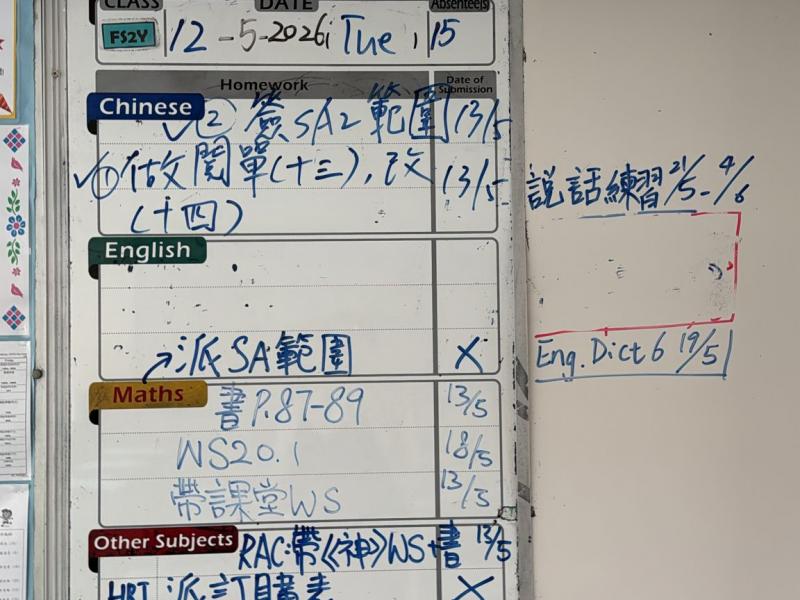 CLASS DATE Absentee(s)
FS2Y 12-5-2026, Tue, 15
Homework Date of Submission
Chinese
✓② 簽SA2範圍 13/5
✓① 做文閱單(十三),改 13/5
(十四)
說話練習 21/5-4/6
English
→派SA範圍 X
Eng. Dict 6 19/5
Maths
書P.87-89 13/5
WS20.1 18/5
帶課堂WS 13/5
Other Subjects
RAC:帶《神》WS+書 13/5
HRT 派訂購表 X